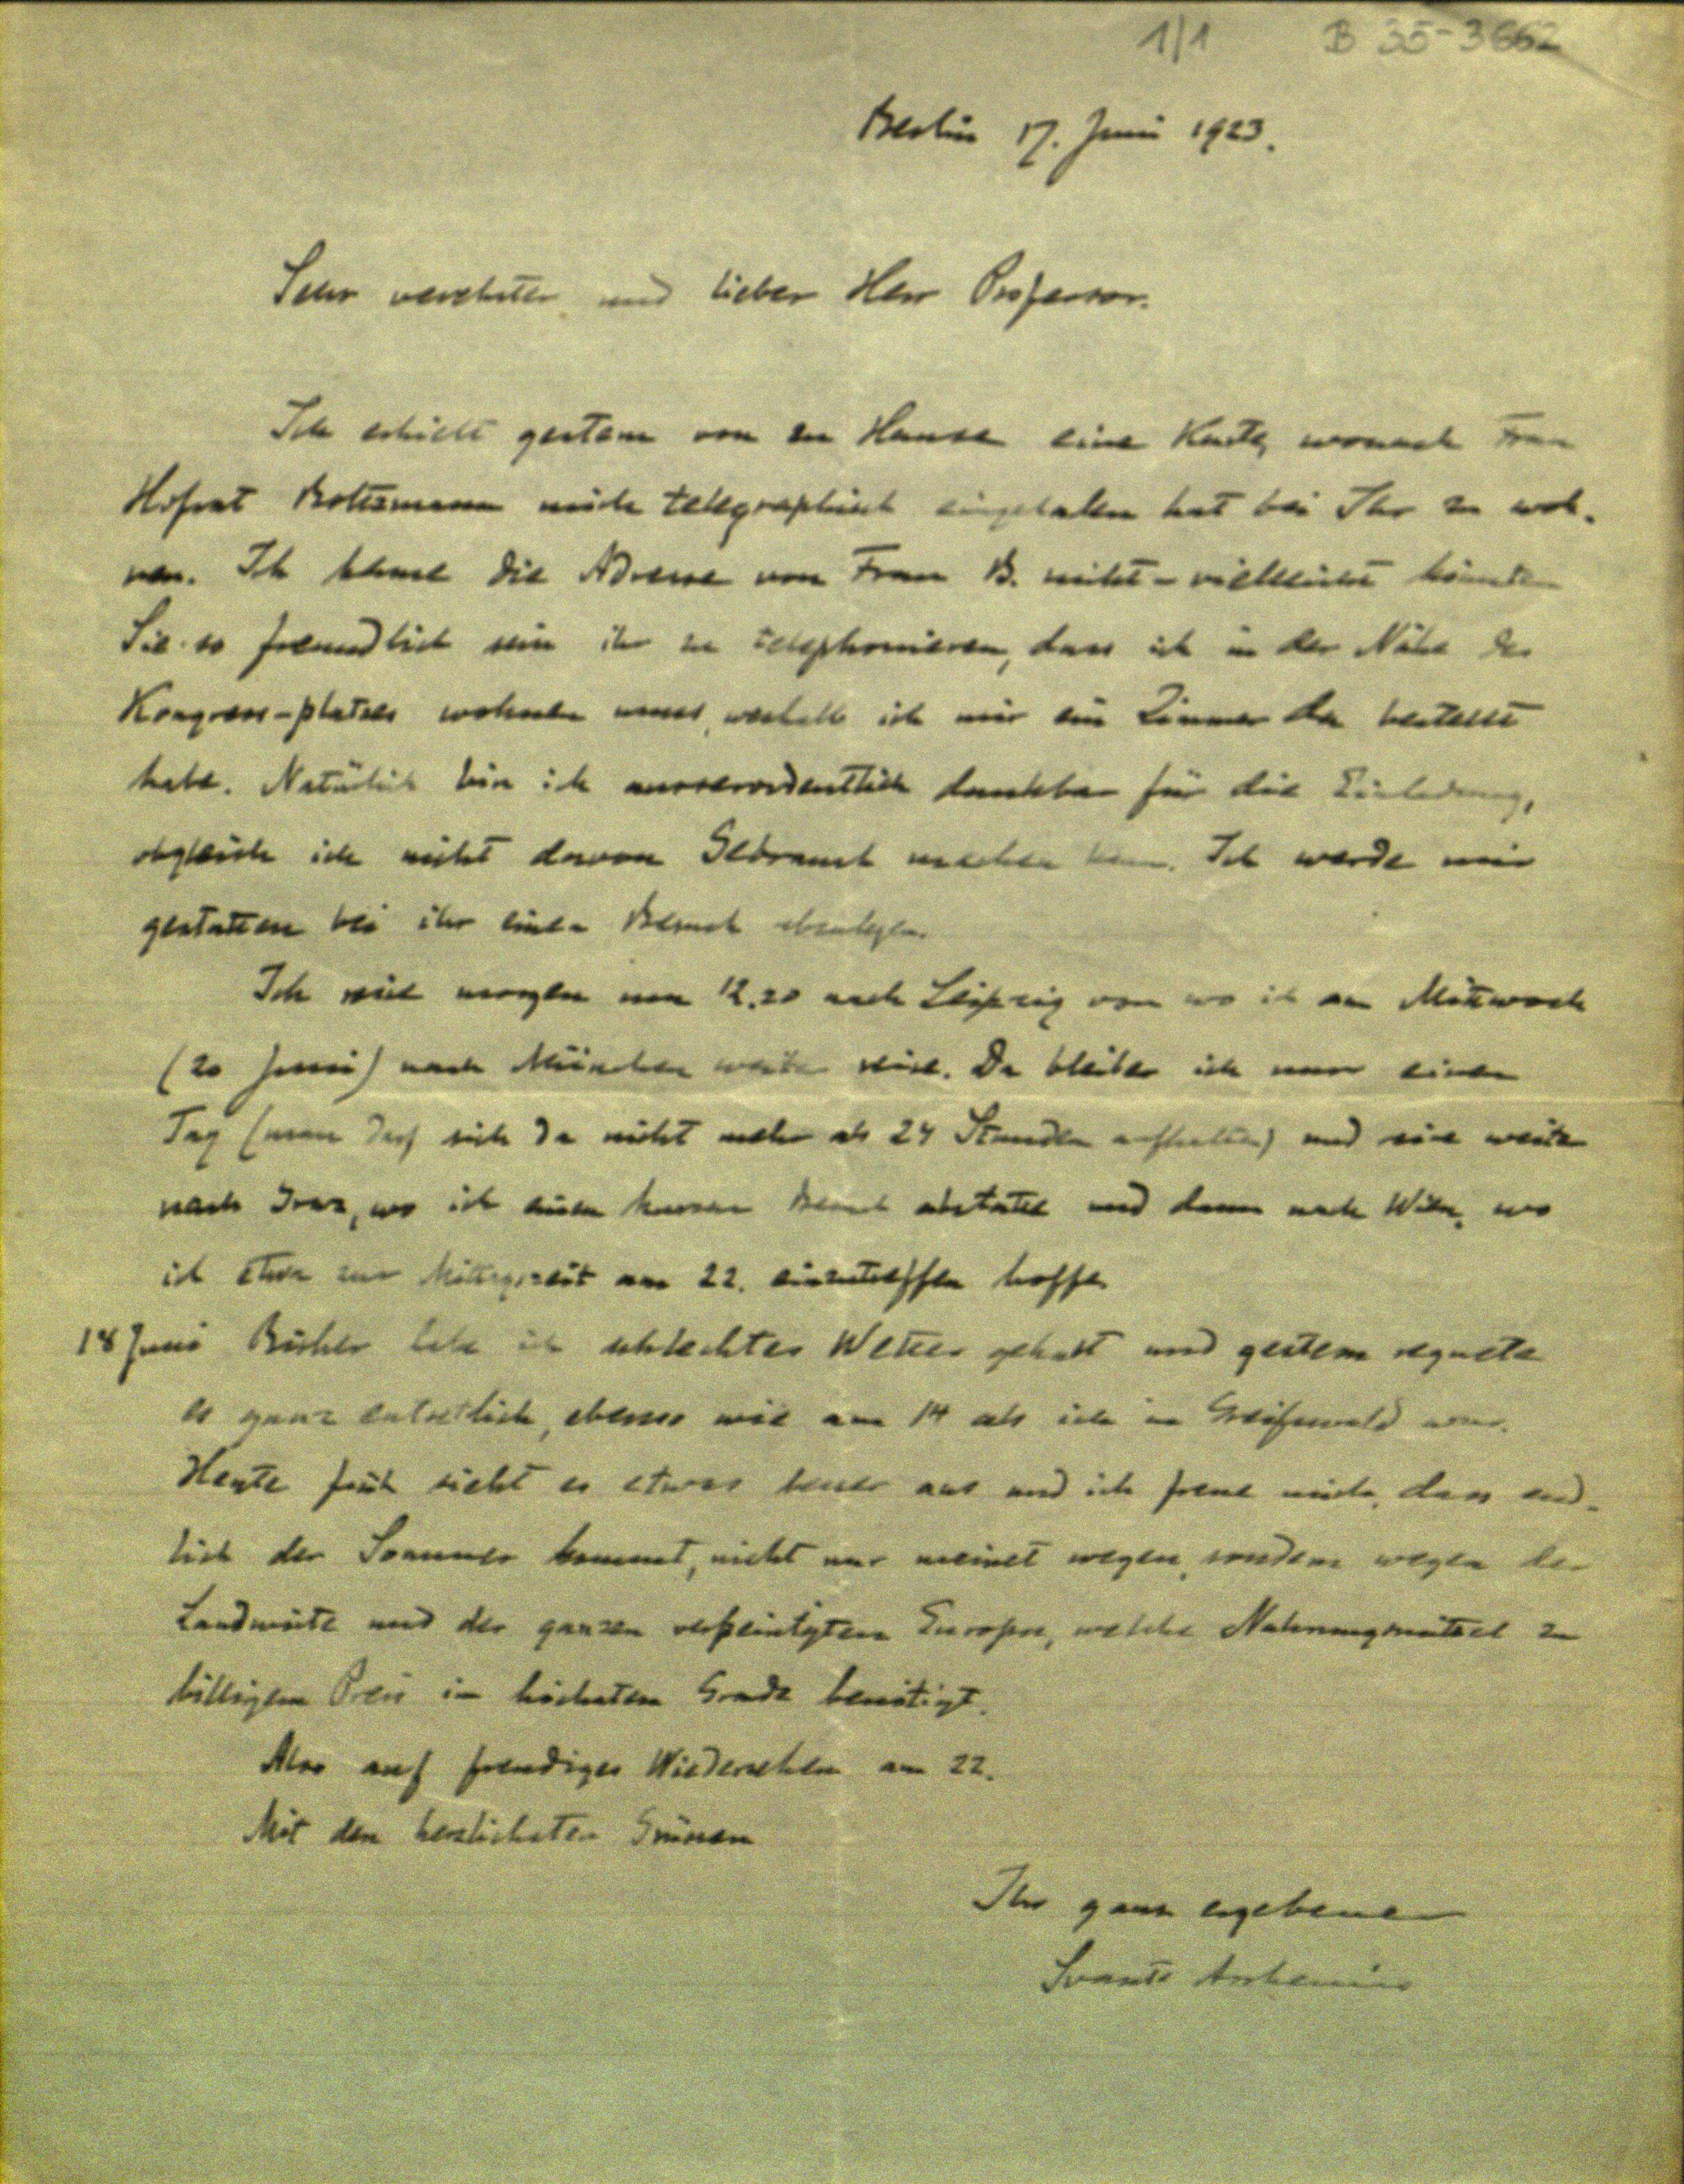 1/1 B 35-3662
Berlin 17. Juni 1923.
Sehr verehrter und lieber Herr Professor.
Ich erhielt gestern von zu Hause eine Karte, wonach Frau
Hofrat Boltzmann mich telegraphisch eingeladen hat bei Ihr zu woh-
nen. Ich kenne die Adresse von Frau B. nicht - vielleicht könnten
Sie so freundlich sein ihr zu telephonieren, dass ich in der Nähe des
Kongress-platzes wohnen muss, weshalb ich mir ein Zimmer da bestellt
habe. Natürlich bin ich ausserordentlich dankbar für die Einladung,
obgleich ich nicht davon Gebrauch machen kann. Ich werde mir
gestatten bei ihr einen Besuch abzulegen.
Ich reise morgen um 12.20 nach Leipzig von wo ich am Mittwoch
(20 Juni) nach München weiter reise. Da bleibe ich nur einen
Tag (man darf sich da nicht mehr als 24 Stunden aufhalten) und reise weiter
nach Graz, wo ich einen kurzen Besuch abstatte und dann nach Wien, wo
ich etwa zur Mittagszeit am 22. einzutreffen hoffe
18 Juni Bisher habe ich schlechtes Wetter gehabt und gestern regnete
es ganz entsetlich, ebenso wie am 14 als ich in Greifswald war.
Heute früh sieht es etwas besser aus und ich freue mich, dass end-
lich der Sommer kommt, nicht nur meinet wegen, sondern wegen der
Landwirte und des ganzen verpeinigten Europas, welche Nahrungsmittel zu
billigem Preis in höchstem Grade benötigt.
Also auf freudiges Wiedersehen am 22.
Mit den herzlichsten Grüssen
Ihr ganz ergebener
Svante Arrhenius